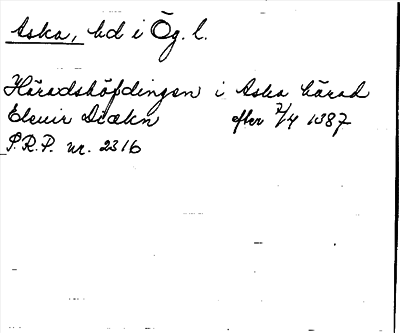 Aska, hd i Ög. l.
Häradshöfdingen i Aska härad
Elevir Diækn efter 7/4 1387
P.R.P. nr. 2316